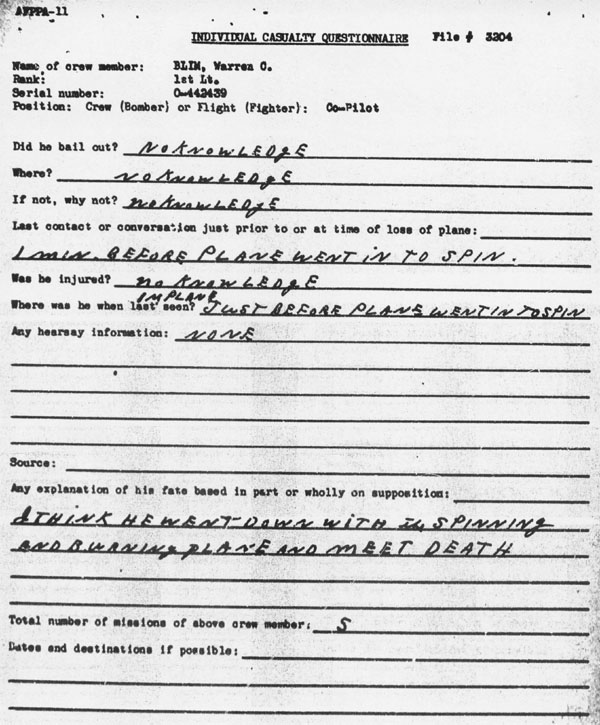 AFPPA-11
INDIVIDUAL CASUALTY QUESTIONNAIRE File # 3204
Name of crew member: BLIM, Warren C.
Rank: 1st Lt.
Serial number: O-442439
Position: Crew (Bomber) or Flight (Fighter): Co-Pilot
Did he bail out? NO KNOWLEDgE
Where? NO KNOWLEDgE
If not, why not? NO KNOWLEDgE
Last contact or conversation just prior to or at time of loss of plane:
1 MIN. BEFORE PLANE WENT IN TO SPIN.
Was he injured? NO KNOWLEDgE
IMPLANE
Where was he when last seen? JUST BEFORE PLANE WENT IN TO SPIN
Any hearsay information: NONE
Source:
Any explanation of his fate based in part or wholly on supposition:
I THINK HE WENT DOWN WITH the SPINNING
AND BURNINg PLANE AND MEET DEATH
Total number of missions of above crew member: 5
Dates and destinations if possible: